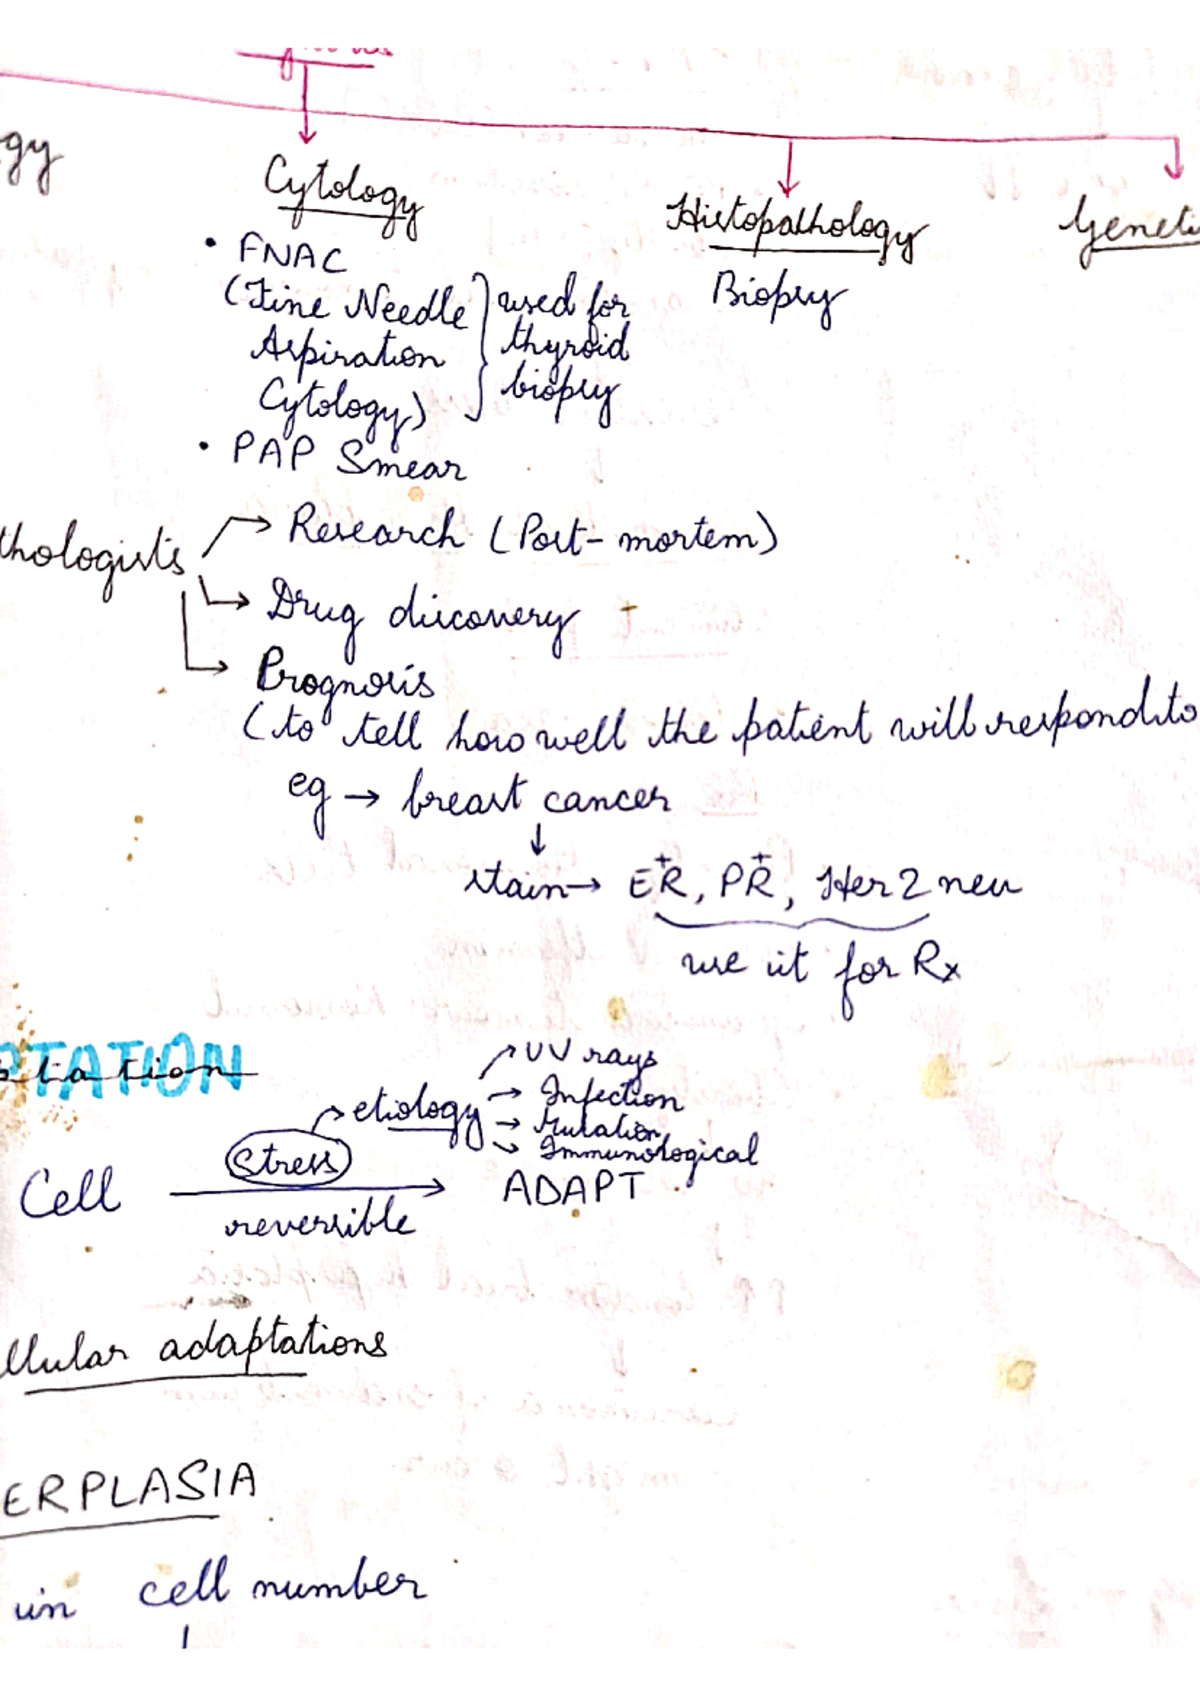 gy
Cytology
Histopathology
Geneti
• FNAC
(Fine Needle
Aspiration
Cytology)
used for
thyroid
biopsy
Biopsy
• PAP Smear
thologists → Research (Post-mortem)
→ Drug discovery
→ Prognosis
(to tell how well the patient will respond to
eg → breast cancer
↓
stain → ER+, PR+, Her 2 neu
use it for Rx
PTATION
etiology → UV rays
→ Infection
→ Mutation
→ Immunological
Cell
Stress
reversible
ADAPT
llular adaptations
ERPLASIA
in cell number